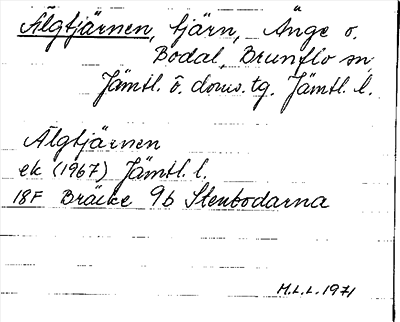 Älgtjärnen, tjärn, Änge o.
Bodal, Brunflo sn,
Jämtl. ö. doms.tg. Jämtl. l.
Älgtjärnen
ek (1967) Jämtl. l.
18F Bräcke 9b Stenbodarna
M.L.L. 1971